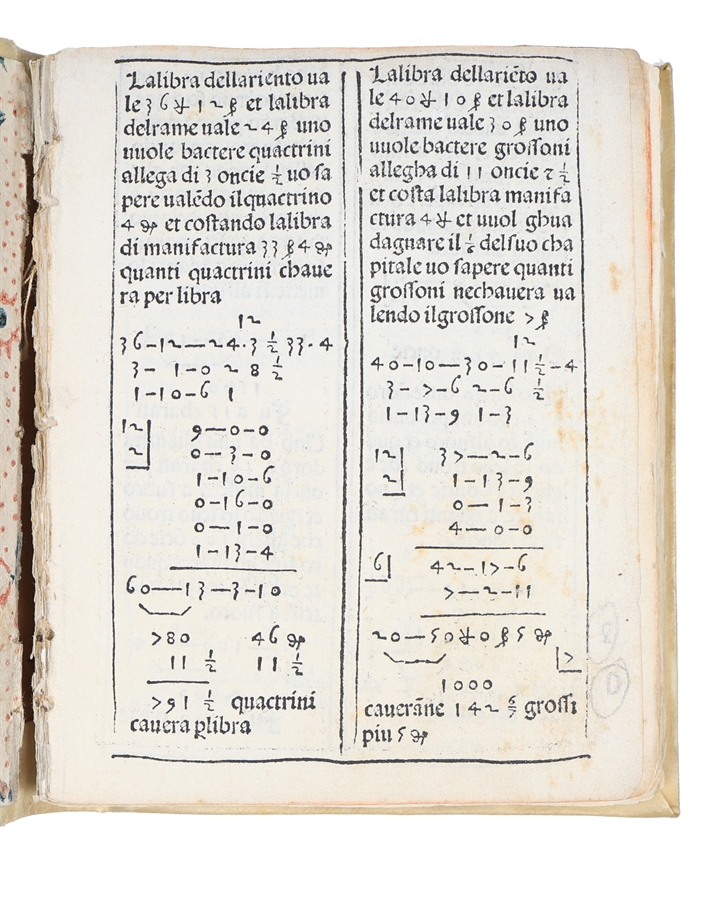 Lalibra dellariento ua
le 36 ₶ 12 ꝭ et lalibra
delrame uale 24 ꝭ uno
uuole bactere quactrini
allega di 3 oncie ½ uo sa
pere ualēdo ilquactrino
4 ₰ et costando lalibra
di manifactura 33 ꝭ 4 ₰
quanti quactrini chaue
ra per libra
12
36—12—24·3 ½ 33·4
3— 1—0 2 8 ½
1—10—6 1
12| 9—0—0
2| 0—3—0
1—10—6
0—16—0
0—1—0
1—13—4
60—13—3—10
780 46 ₰
11 ½ 11 ½
791 ½ quactrini
cauera ꝑlibra
Lalibra dellariēto ua
le 40 ₶ 10 ꝭ et lalibra
delrame uale 30 ꝭ uno
uuole bactere grossoni
allegha di 11 oncie 7 ½
et costa lalibra manifa
ctura 4 ₶ et uuol ghua
dagnare il ⅙ delsuo cha
pitale uo sapere quanti
grossoni nechauera ua
lendo ilgrossone 7 ꝭ
12
40—10—30—11½—4
3— 7—6 2—6 ½
1—13—9 1—3
12| 37—2—6
2| 1—13—9
0—1—3
4—0—0
6| 42—17—6
7—2—11
20—50 ₶ 0 ꝭ 5 ₰
|7
1000
cauerāne 142 6/7 grossi
piu 5 ₰